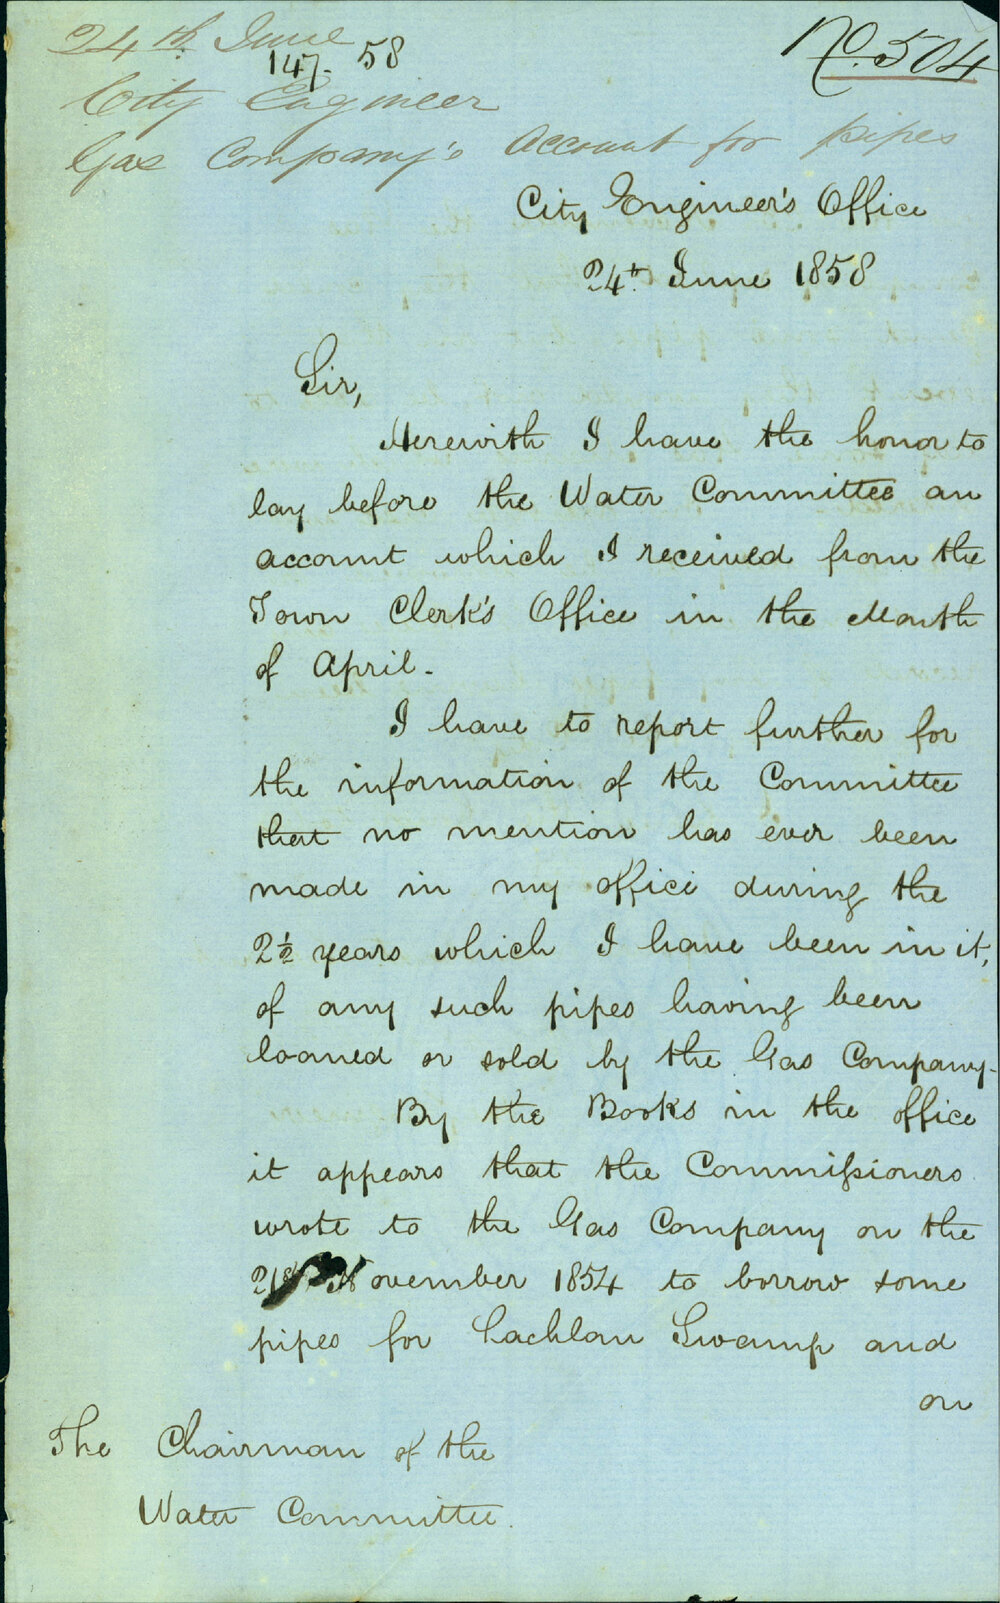 24th June
147. 58
No. 504
City Engineer
Gas Company's Account for pipes
City Engineer's Office
24th June 1858
Sir,
Herewith I have the honor to
lay before the Water Committee an
account which I received from the
Town Clerk's Office in the Month
of April.
I have to report further for
the information of the Committee
that no mention has ever been
made in my office during the
2½ years which I have been in it,
of any such pipes having been
loaned or sold by the Gas Company.
By the Books in the office
it appears that the Commissioners
wrote to the Gas Company on the
21st November 1854 to borrow some
pipes for Lachlan Swamp and
on
The Chairman of the
Water Committee.